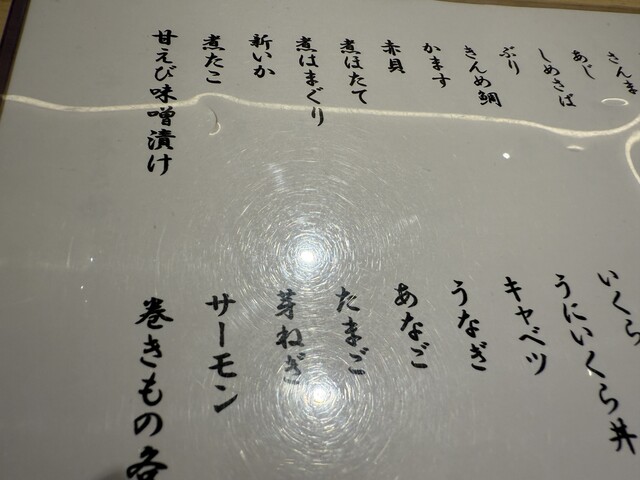 さんま
あじ
しめさば
ぶり
きんめ鯛
かます
赤貝
煮ほたて
煮はまぐり
新いか
煮たこ
甘えび味噌漬け
いくら
うにいくら丼
キャベツ
うなぎ
あなご
たまご
芽ねぎ
サーモン
巻きもの各